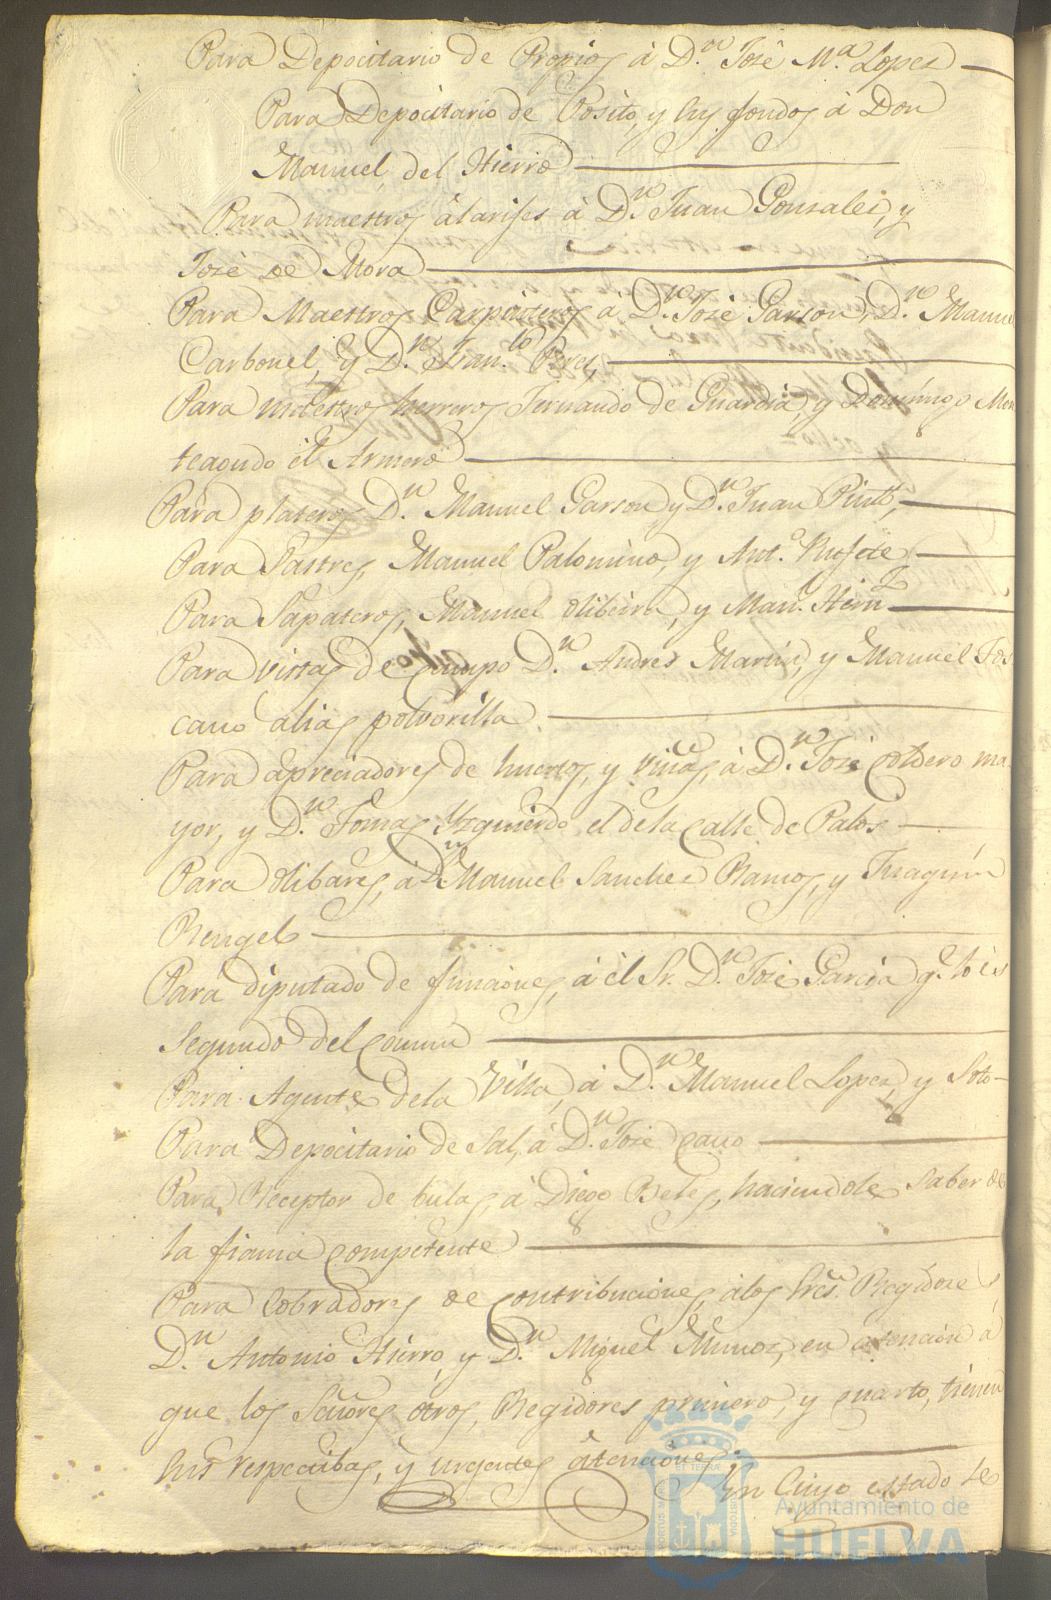 Para Depocitario de Propios á D.n José M.a Lopez
Para Depocitario de Posito, y sus fondos á Don
Manuel del Hierro
Para maestros álarifes á D.n Juan Gonzalez, y
José de Mora
Para Maestros Carpinteros á D.n José Garson, D.n Manuel
Carbonel, y D.n Fran.co Perez
Para maestros herreros Fernando de Guardia, y Domingo Mon
teagudo el Armero
Para plateros D.n Manuel Garson, y D.n Juan Pinto,
Para Sastres, Manuel Palomino, y Ant.o Rofete
Para Sapateros, Manuel Olibeira, y Man.
Para vistas de Campo D.n Andres Martin, y Manuel Tos
cano alias polvorilla
Para apreciadores de huertos, y viñas, á D.n José Cordero ma-
yor, y D.n Tomas Yzquierdo el de la Calle de Palos
Para Olibares, á D.n Manuel Sanchez Ramos, y Juaquin
Rengel
Para diputado de funciones, á él Sr. D.n José Garcia q.e lo és
Segundo del Comun
Para Agente dela Villa, á D.n Manuel Lopez, y Soto
Para Depocitario de Sal, á D.n José Cano
Para Receptor de bulas, á Diego Beles, haciendole saber dé
la fianza Competente
Para Cobradores de Contribuciones, álos Sres. Regidores,
D.n Antonio Hierro, y D.n Miguel Muñoz, en atención á
que los Señores otros, Regidores primero, y cuarto, tienen
sus respectibas, y urgentes átenciones
En Cuyo estado se
PORTUS MARIS ET TERRAE CUSTODIA
Ayuntamiento de
HUELVA